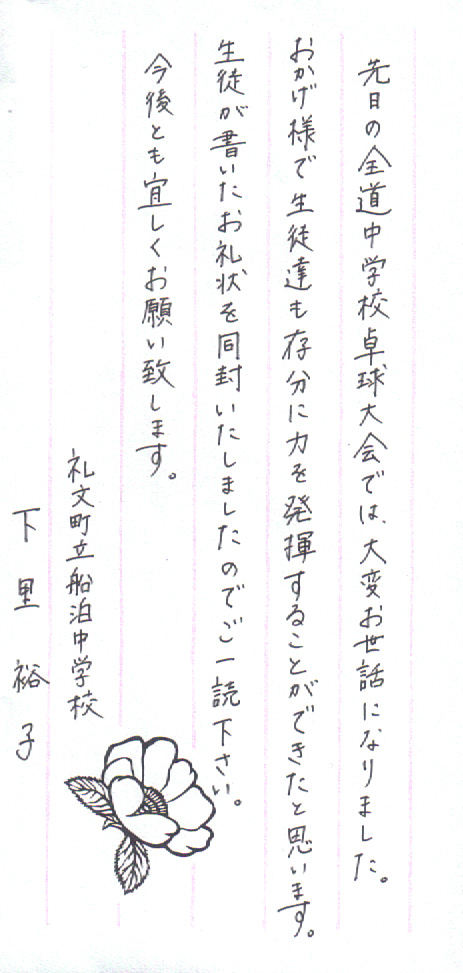 先日の全道中学校卓球大会では、大変お世話になりました。
おかげ様で生徒達も存分に力を発揮することができたと思います。
生徒が書いたお礼状を同封いたしましたのでご一読下さい。
今後とも宜しくお願い致します。
礼文町立船泊中学校
下里裕子